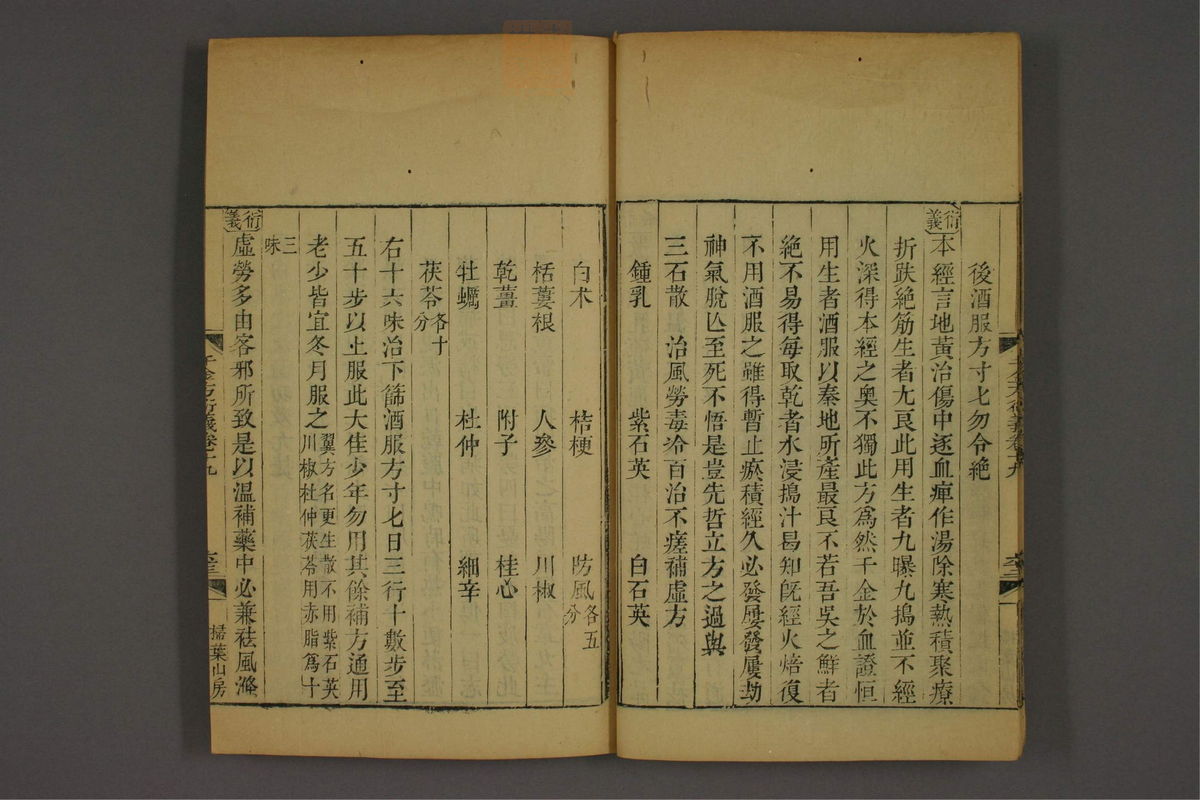 後酒服方寸七勿令絶
衍義
本經言地黃治傷中逐血痺作湯除寒熱積聚療
折跌絶筋生者尤良此用生者九曝九搗並不經
火深得本經之奧不獨此方爲然千金於血證恒
用生者酒服以秦地所產最良不若吾吳之鮮者
絶不易得每取乾者水浸搗汁曷知旣經火焙復
不用酒服之雖得暫止瘀積經久必發屢發屢劫
神氣脫亾至死不悟是豈先哲立方之過與
三石散 治風勞毒冷百治不瘥補虛方
鍾乳 紫石英 白石英
白朮 桔梗 防風各五分
栝蔞根 人參 川椒
乾薑 附子 桂心
牡蠣 杜仲 細辛
茯苓各十分
右十六味治下篩酒服方寸七日三行十數步至
五十步以上服此大佳少年勿用其餘補方通用
老少皆宜冬月服之翼方名更生散不用紫石英川椒杜仲茯苓用赤脂爲十
三味
衍義
虛勞多由客邪所致是以溫補藥中必兼袪風滌
千金方衍義卷十九
掃葉山房